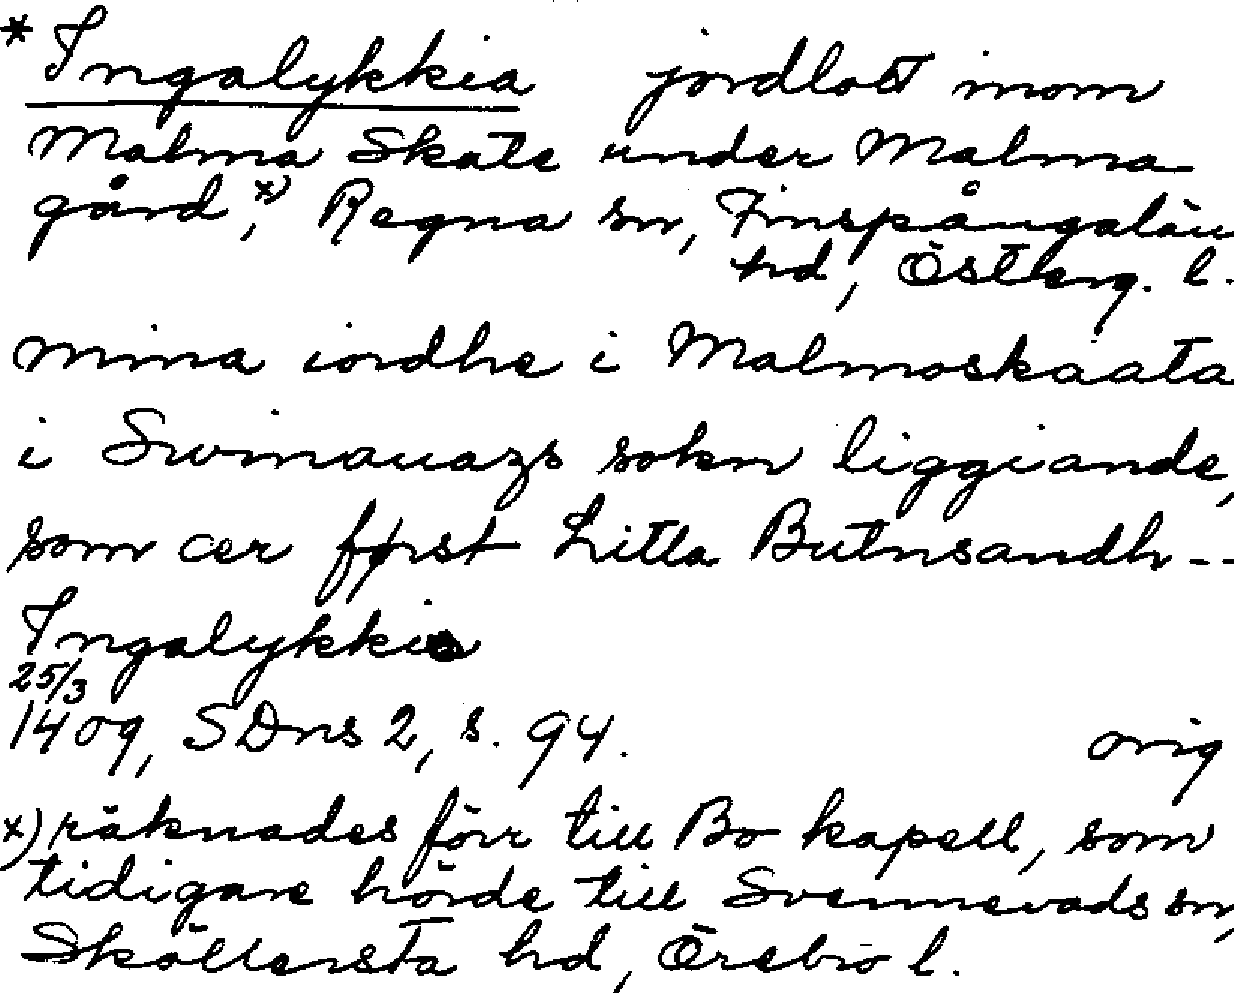 * Ingalykkia jordlott inom
Malma Skate under Malma
gård,x) Regna sn, Finspångalän
hd, Österg. l.
mina iordhe i Malmoskaata
i Swinauazs sokn liggiande,
som aer først Litla Butnsandh --
Ingalykkia
25/3
1409, SDns 2, s. 94. orig
x) räknades förr till Bo kapell, som
tidigare hörde till Svennevads sn,
Sköllersta hd, Örebro l.